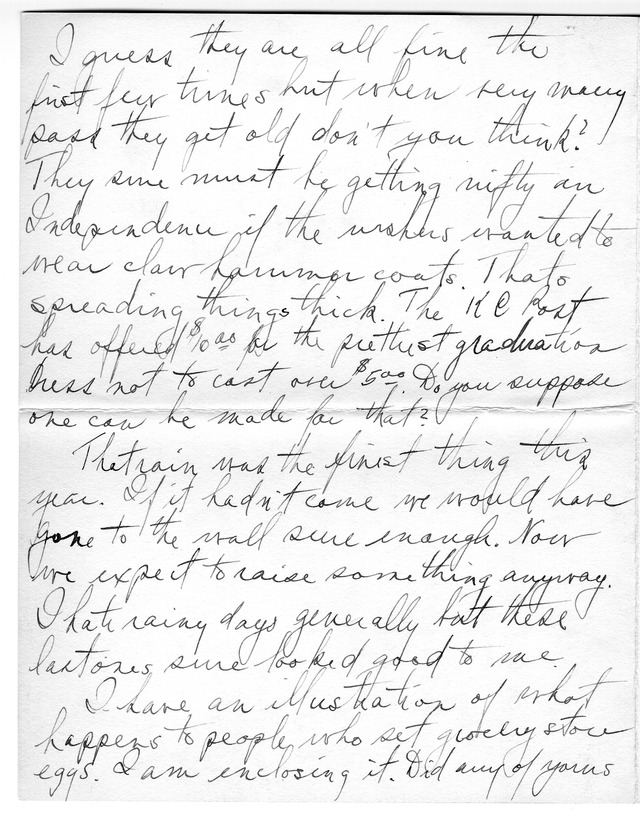 I guess they are all fine the
first few times but when very many
pass they get old don't you think?
They sure must be getting nifty in
Independence if the ushers wanted to
wear claw hammer coats. Thats
spreading things thick. The K C Post
has offered $10.00 for the prettiest graduation
dress not to cost over $5.00. Do you suppose
one can be made for that?
That rain was the finest thing this
year. If it hadn't come we would have
gone to the wall sure enough. Now
we expect to raise something anyway.
I hate rainy days generally but these
last ones sure looked good to me.
I have an illustration of what
happens to people who set grocery store
eggs. I am enclosing it. Did any of yours